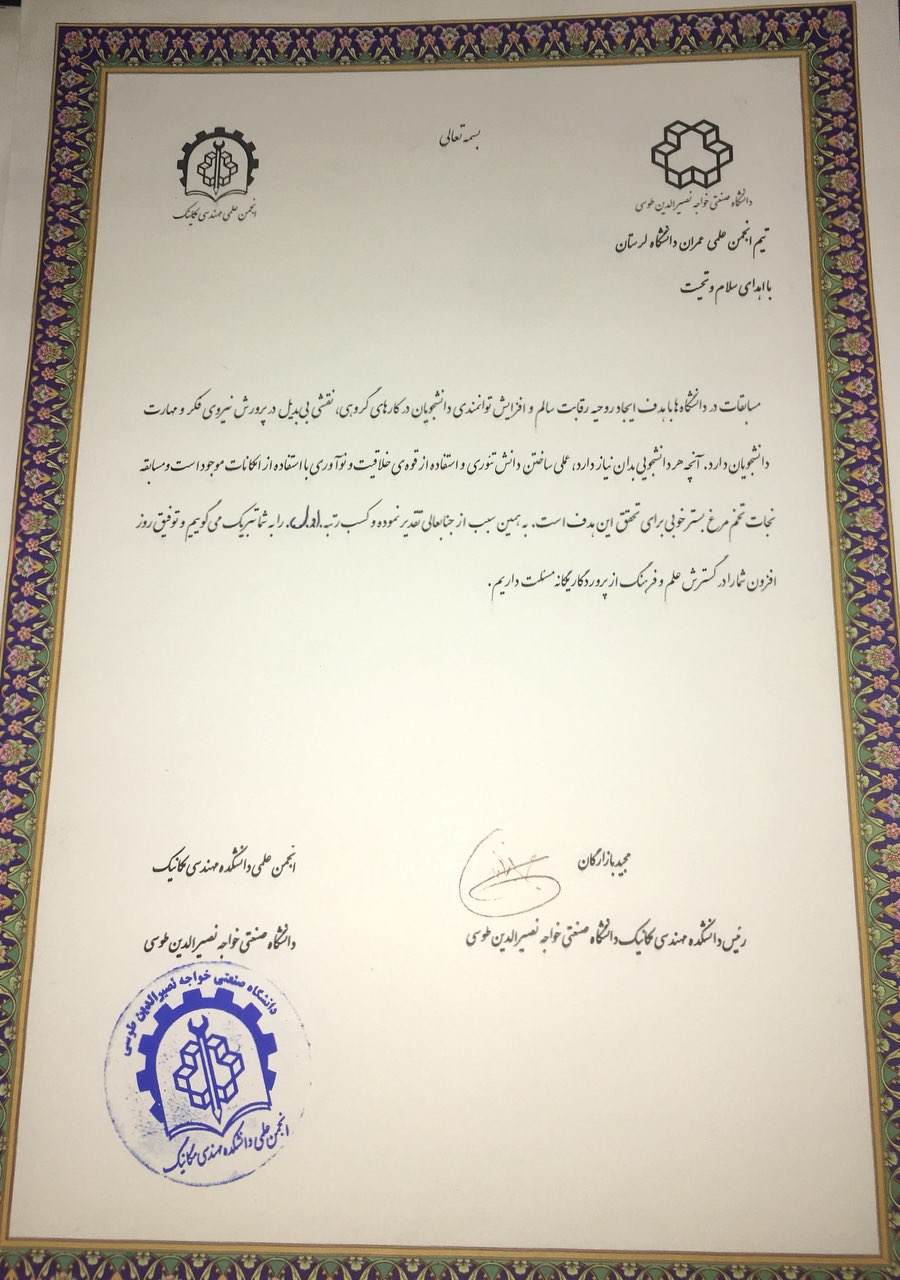 بسمه تعالی
دانشگاه صنعتی خواجه نصیرالدین طوسی
انجمن علمی مهندسی مکانیک
تیم انجمن علمی عمران دانشگاه لرستان
با اهدای سلام و تحیت
مسابقات در دانشگاه ها با هدف ایجاد روحیه رقابت سالم و افزایش توانمندی دانشجویان در کارهای گروهی، نقشی بی بدیل در پرورش نیروی فکر و مهارت
دانشجویان دارد. آنچه هر دانشجویی بدان نیاز دارد، عملی ساختن دانش تئوری و استفاده از قوه ی خلاقیت و نوآوری با استفاده از امکانات موجود است و مسابقه
نجات تخم مرغ بستر خوبی برای تحقق این هدف است. به همین سبب از جنابعالی تقدیر نموده و کسب رتبه .اول. را به شما تبریک می گوییم و توفیق روز
افزون شما را در گسترش علم و فرهنگ از پروردگار یگانه مسئلت داریم.
مجید بازارگان
رئیس دانشکده مهندسی مکانیک دانشگاه صنعتی خواجه نصیرالدین طوسی
انجمن علمی دانشکده مهندسی مکانیک
دانشگاه صنعتی خواجه نصیرالدین طوسی
دانشگاه صنعتی خواجه نصیرالدین طوسی
انجمن علمی دانشکده مهندسی مکانیک